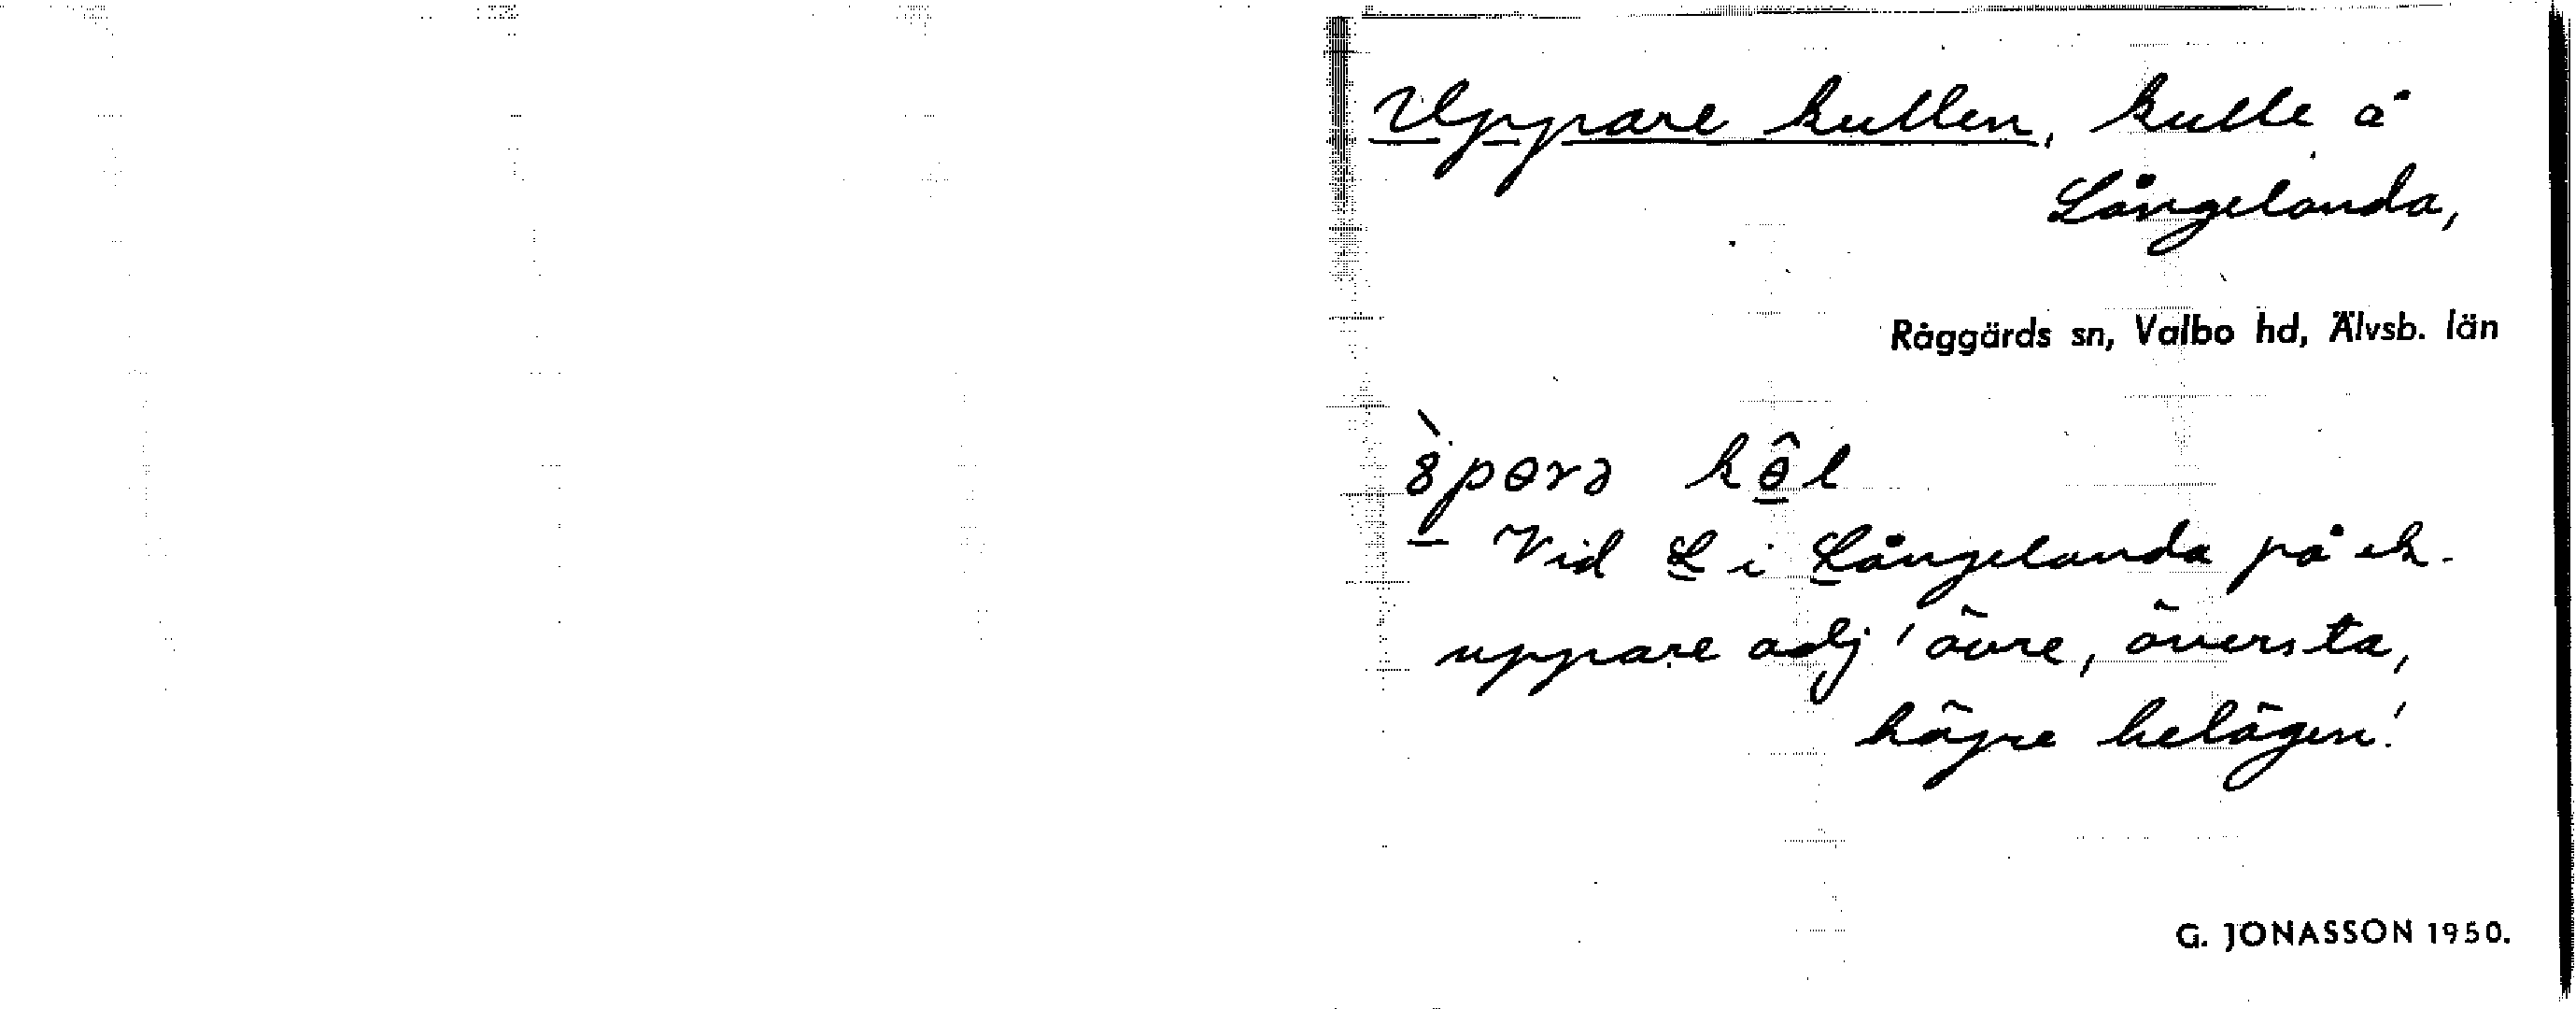 Uppare kullen, kulle å
Långelanda,
Råggärds sn, Valbo hd, Älvsb. län
ȣ̀pərə kθ̂l
Vid L i Långelanda på ek.
uppare adj 'övre, översta,
högre belägen'.
G. JONASSON 1950.